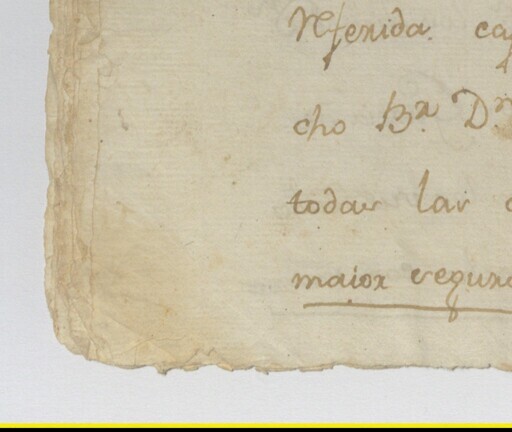 referida
cho Br. Dn
todas las
maior segur